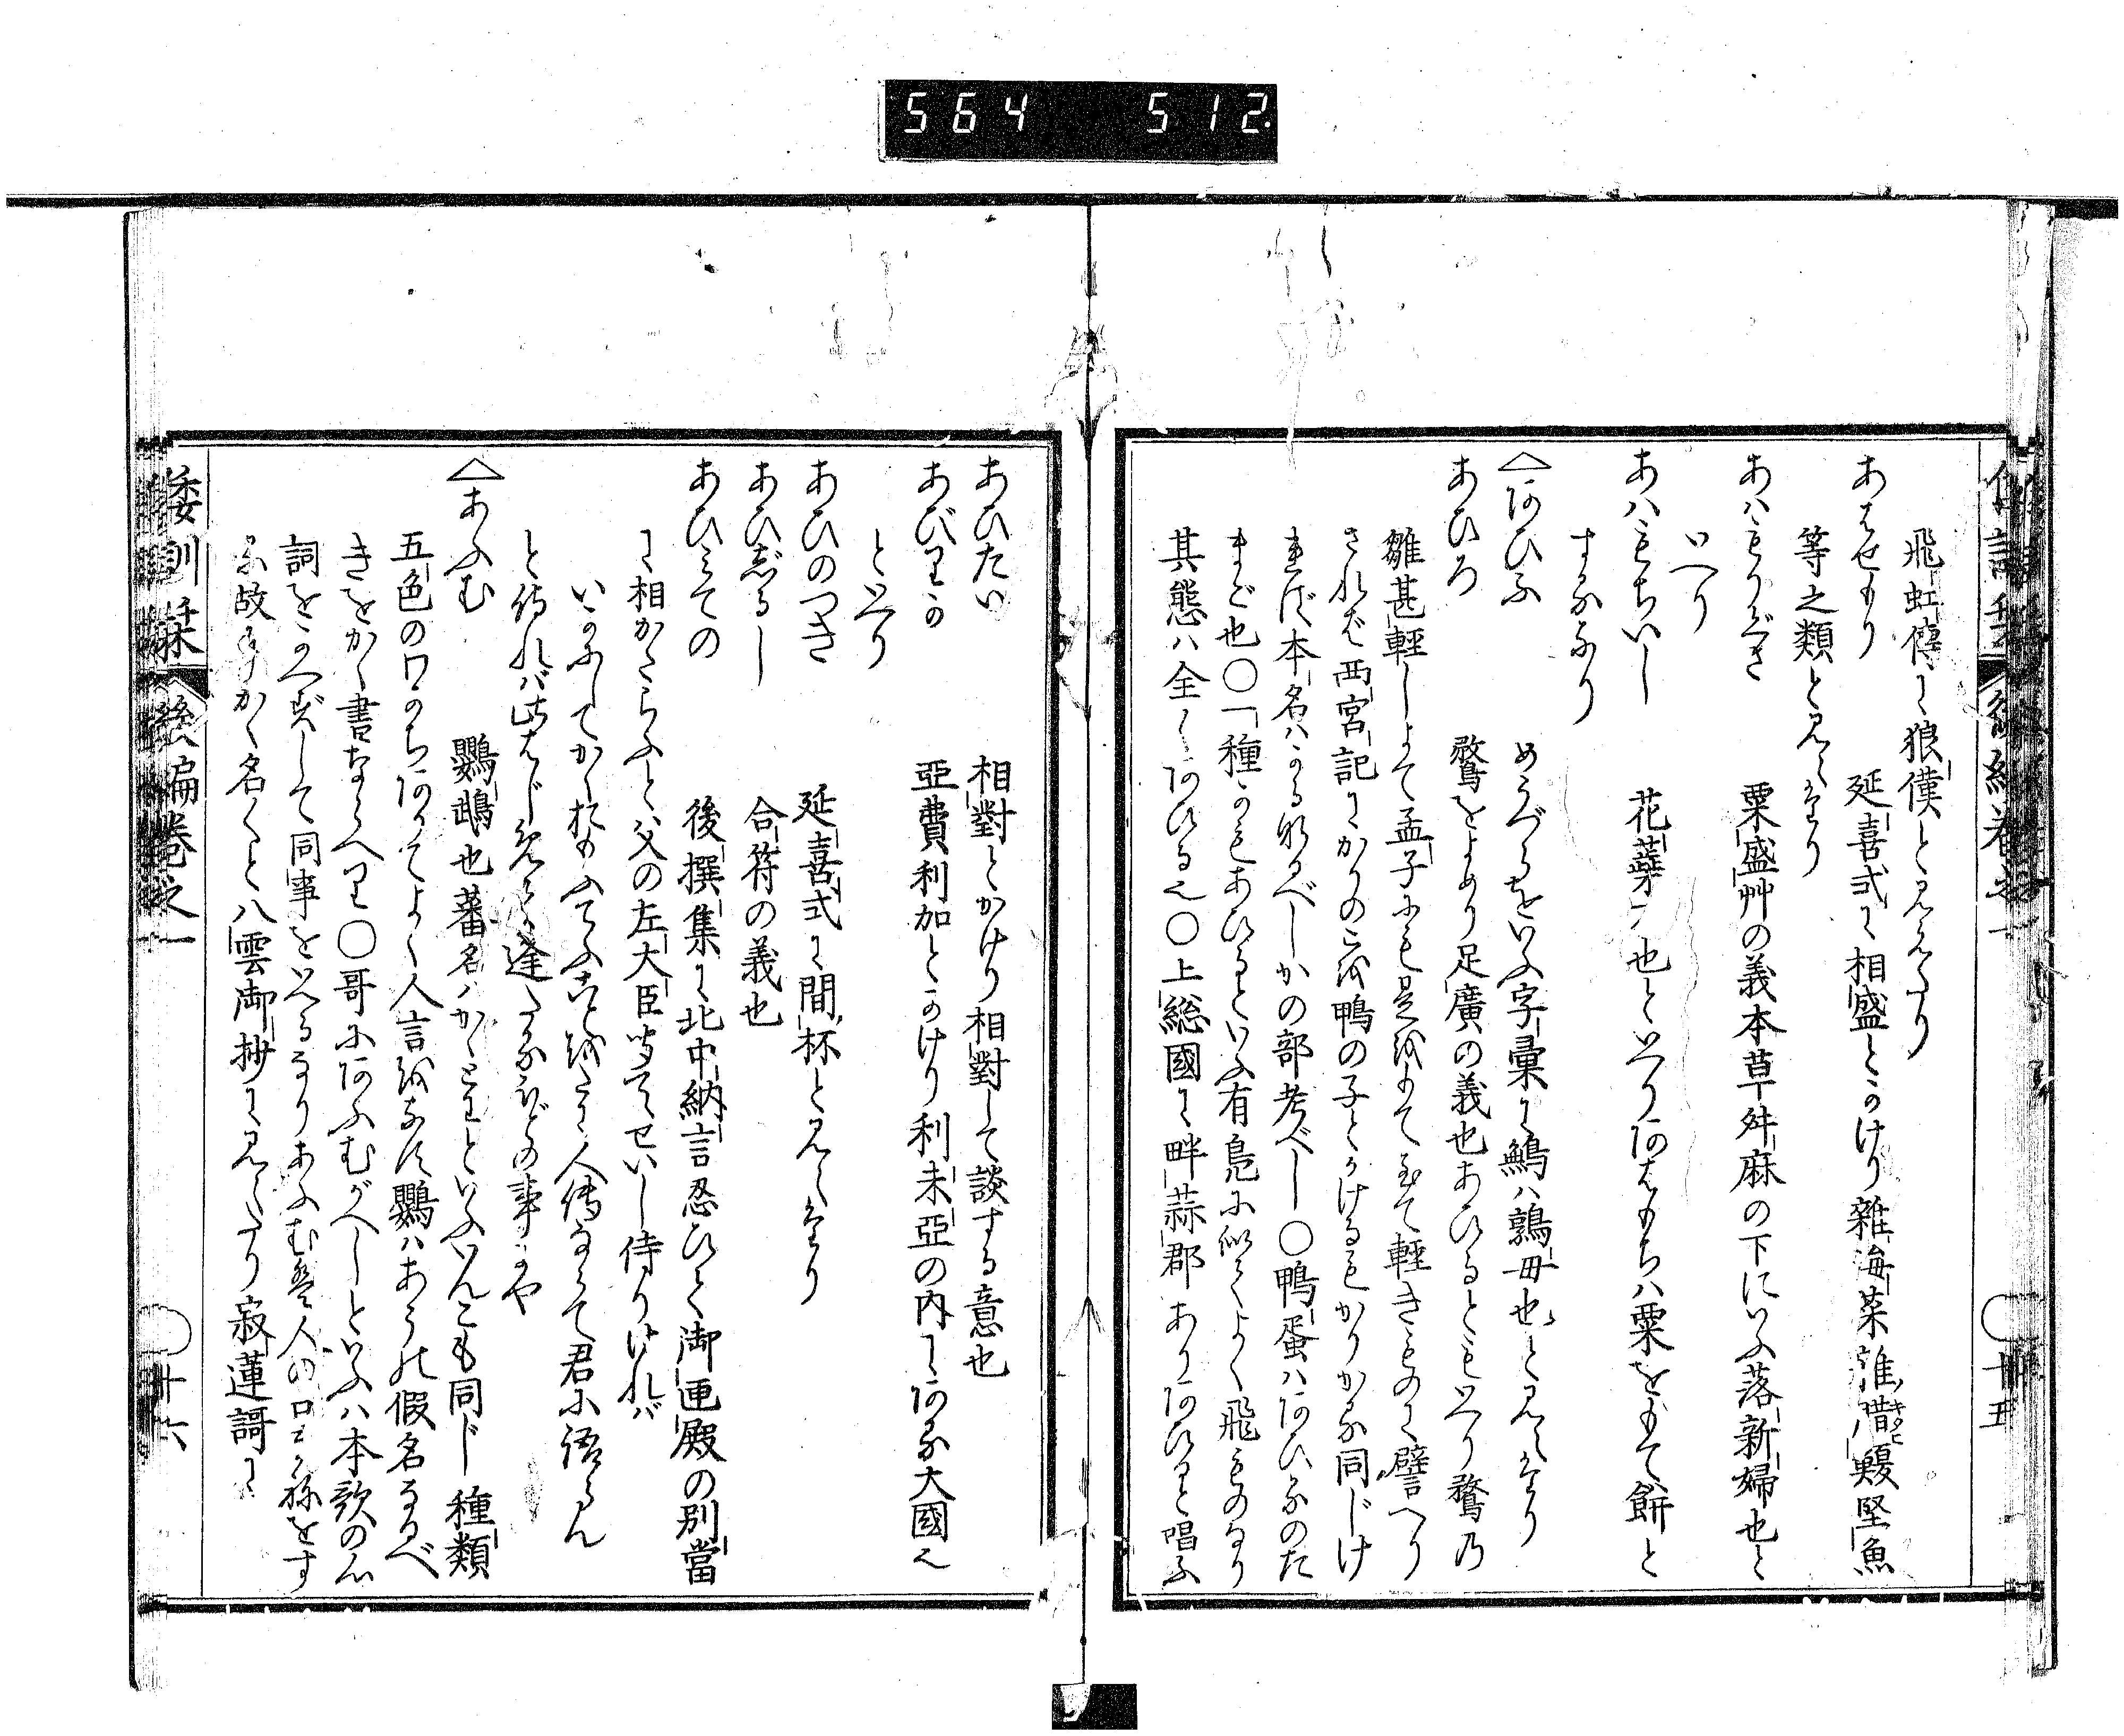 564 512.
飛虹傳に狼僕と見えたり
あはせもり 延喜式に相盛とかけり雜海菜雜腊鰒堅魚
等之類と見えたり
あはもりぐさ 粟盛艸の義本草舛麻の下にいふ落新婦也と
いへり
あはもちいし 花蘂石也といへりあはもちハ粟をもて餅と
するなり
あひふ めうどりをいふ字彙に鷡ハ鶉毋也と見えたり
あひろ 鶩をよめり足廣の義也あひるともいへり鶩乃
雛甚輕しよて孟子にも是をもて至て輕きものに譬へり
されど西宮記にかりのこを鴨の子とかけるもかりかも同じけ
れば本名ハかるなるべしかの部考べし〇鴨蛋ハあひるのた
まご也〇一種のもあひるといふ有鳧に似てよく飛ものなり
其態ハ全くあひる也〇上総國に畔蒜郡ありあひると唱ふ
あひたい 相對とかけり相對して談する意也
あびりか 亞費利加とかけり利未亞の内にある大國也
といへり
あひのつき 延喜式に間杯と見えたり
あひじるし 合符の義也
あひみての 後撰集に北中納言忍ひて御匣殿の別當
に相かたらふと父の左大臣聞てせいし侍りけれバ
いかにしてかく思ふてふことをたに人傳ならて君に語らん
と侍れバ此はじめて逢たるほどの事にや
あふむ 鸚鵡也蕃名ハかくとりといふいんこも同じ種類
五色のわかちありてよく人言をなす鸚ハあうの假名なるべ
きをかく書ならへり〇哥にあふむがへしといふハ本歌の心
詞をかへずして同事をいへるなりあふむ㐂人の口まねをす
る故にかく名くと八雲御抄に見えたり寂蓮謌に
倭訓栞 後編卷之一 〇十五
倭訓栞 後編卷之一 〇十六